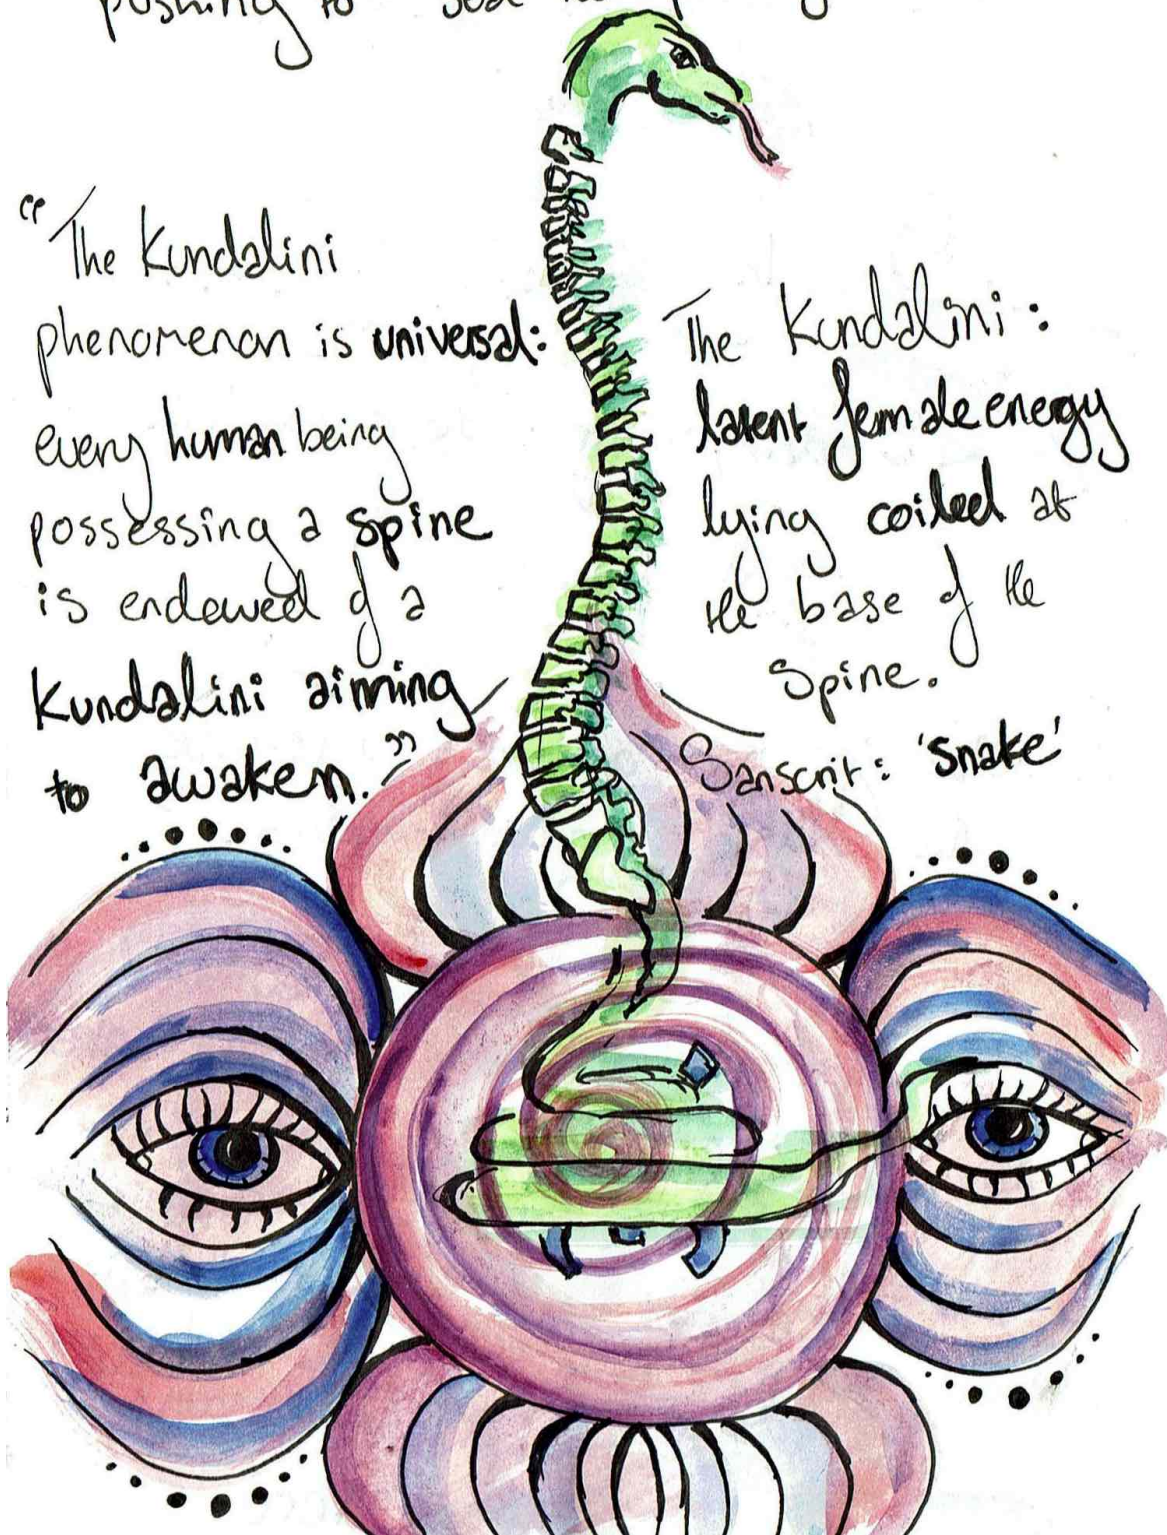 pushing to
"The Kundalini
phenomenon is universal:
every human being
possessing a spine
is endowed of a
Kundalini aiming
to awaken."
The Kundalini:
latent female energy
lying coiled at
the base of the
Spine.
Sanscrit: 'snake'